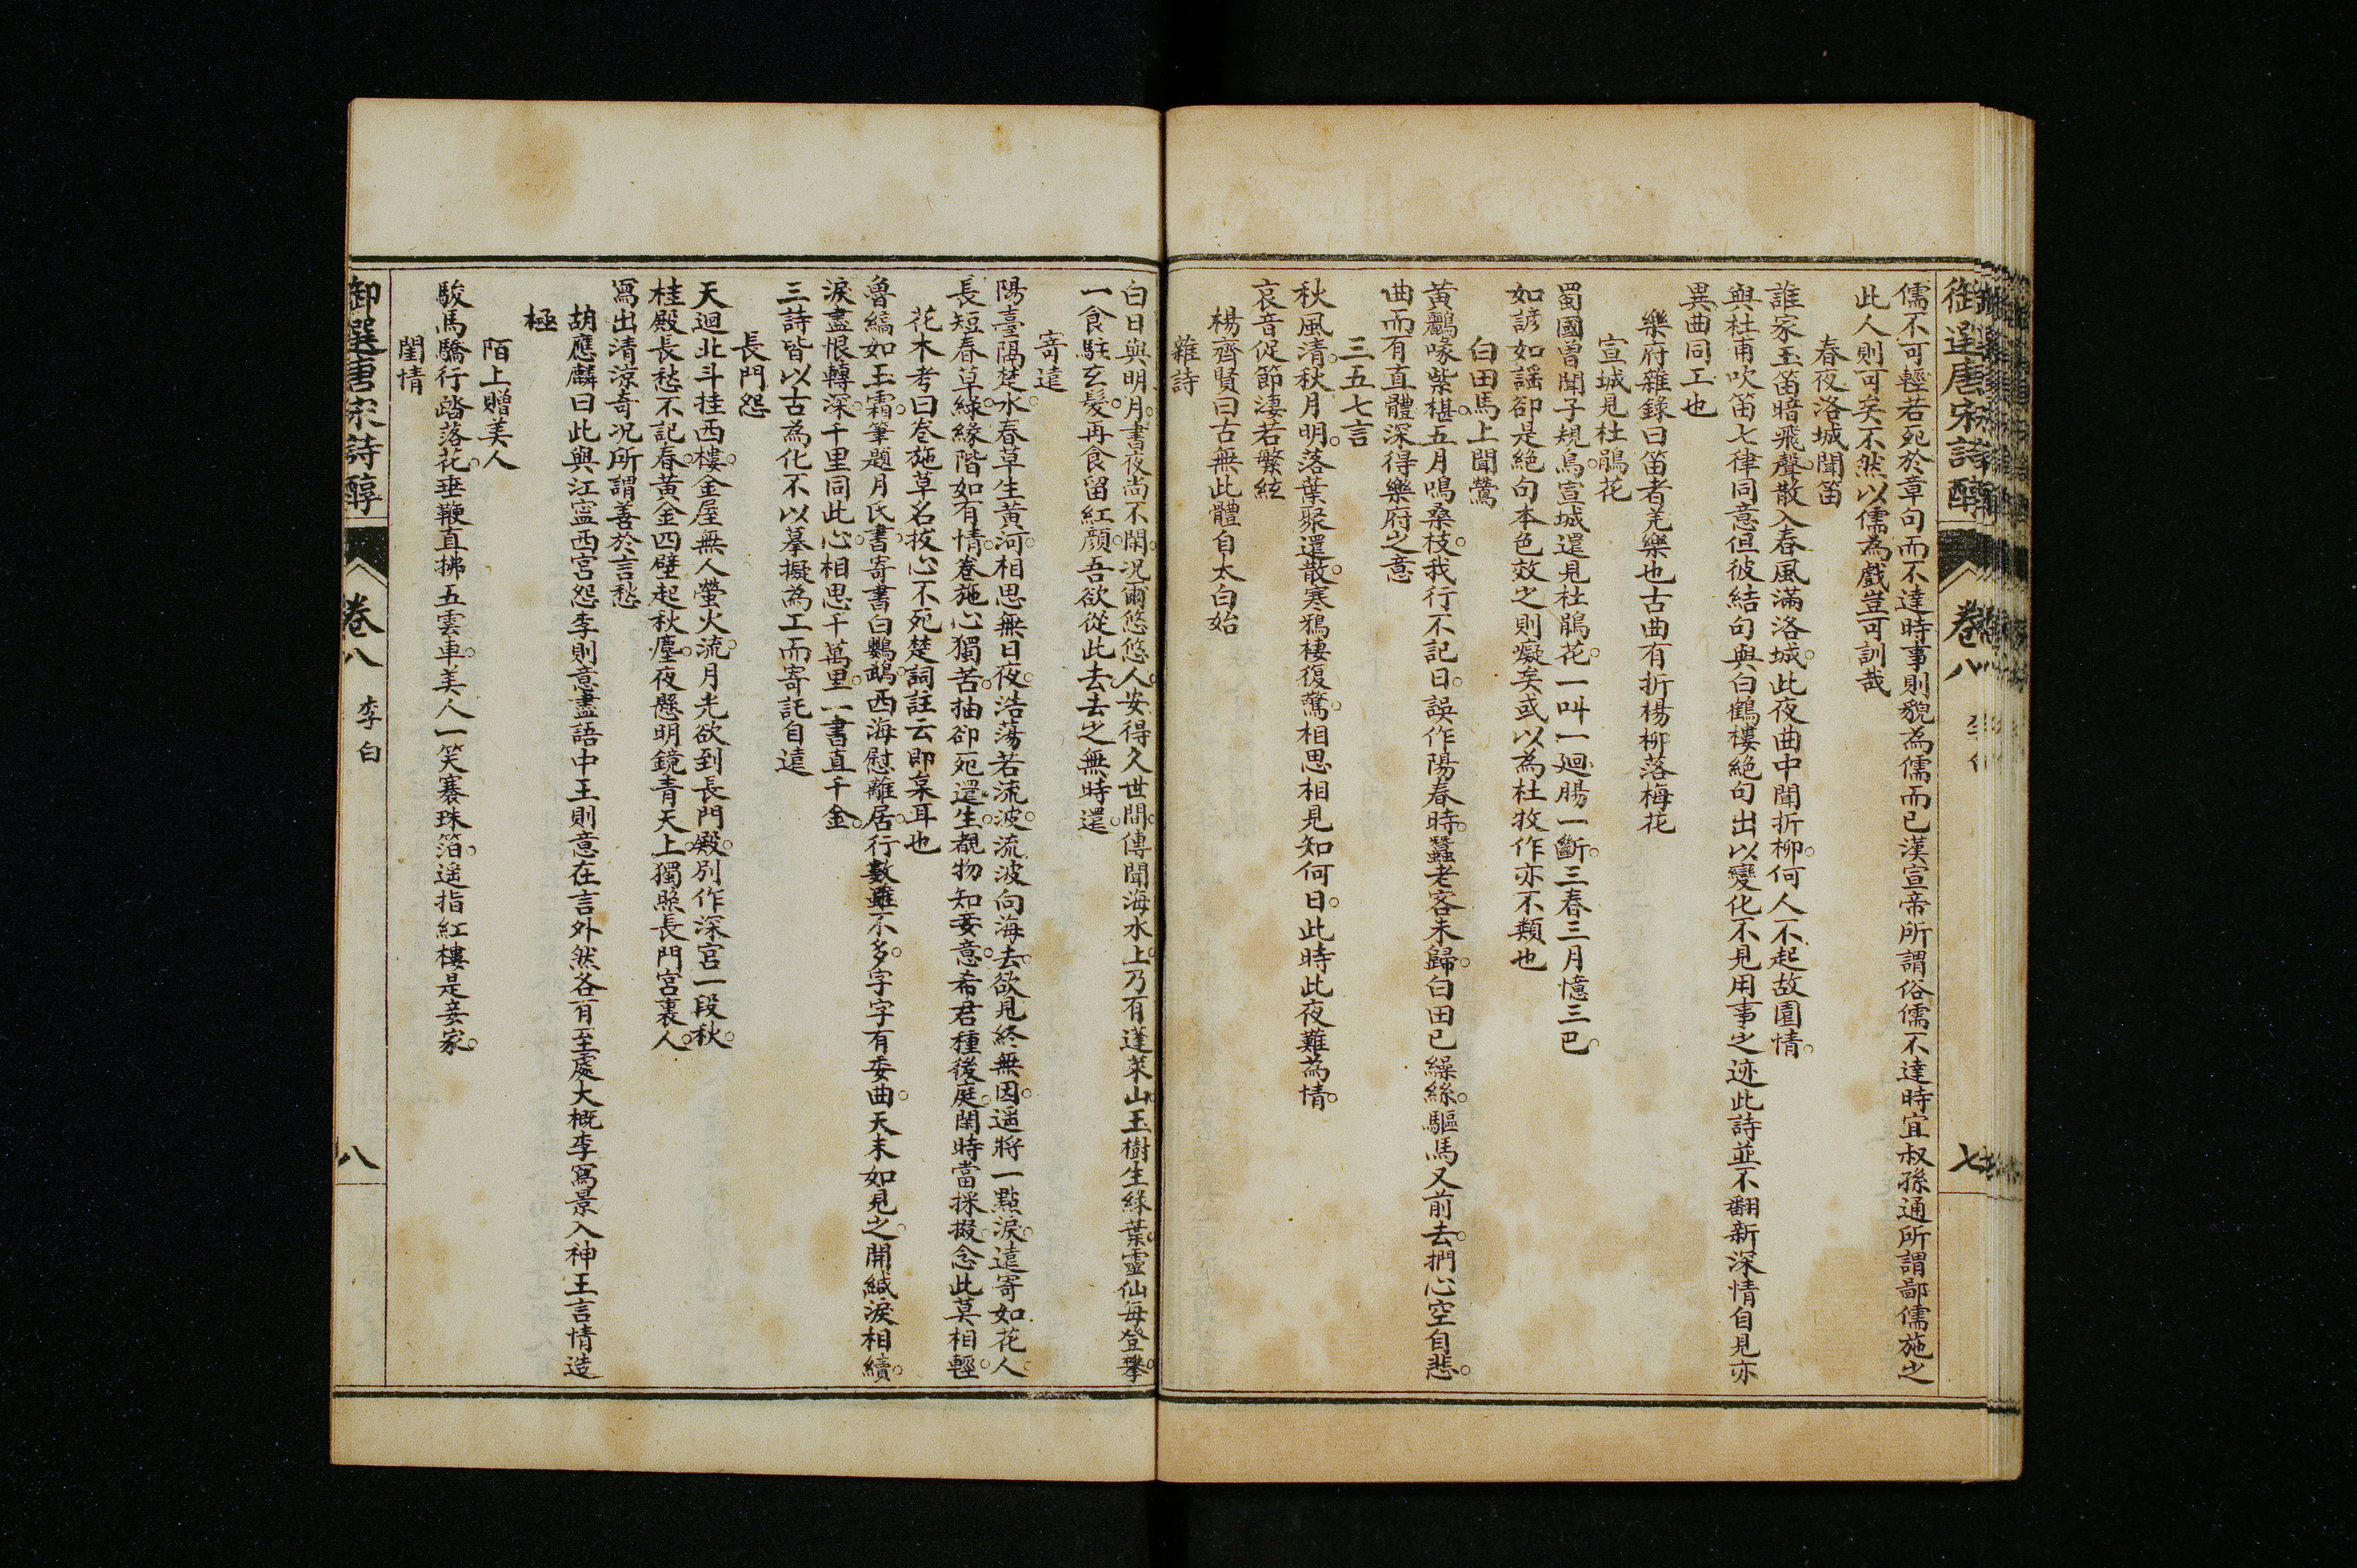 御選唐宋詩醇 卷八 李白 七
儒不可輕若死於章句而不達時事則貌為儒而已漢宣帝所謂俗儒不達時宜叔孫通所謂鄙儒施之
此人則可矣不然以儒為戲豈可訓哉
春夜洛城聞笛
誰家玉笛暗飛聲散入春風滿洛城此夜曲中聞折柳何人不起故園情
與杜甫吹笛七律同意但彼結句與白鶴樓絕句出以變化不見用事之迹此詩並不翻新深情自見亦
異曲同工也
樂府雜錄曰笛者羌樂也古曲有折楊柳落梅花
宣城見杜鵑花
蜀國曾聞子規鳥宣城還見杜鵑花一叫一廻腸一斷三春三月憶三巴
如諺如謠卻是絕句本色效之則癡矣或以為杜牧作亦不類也
白田馬上聞鶯
黃鸝啄紫椹五月鳴桑枝我行不記日誤作陽春時蠶老客未歸白田已繰絲驅馬又前去捫心空自悲
曲而有直體深得樂府之意
三五七言
秋風清秋月明落葉聚還散寒鴉棲復驚相思相見知何日此時此夜難為情
哀音促節淒若繁絃
楊齊賢曰古無此體自太白始
雜詩
白日與明月晝夜尚不閑况爾悠悠人安得久世間傳聞海水上乃有蓬萊山玉樹生綠葉靈仙每登攀
一食駐玄髮再食留紅顏吾欲從此去去之無時還
寄遠
陽臺隔楚水春草生黃河相思無日夜浩蕩若流波流波向海去欲見終無因遥將一點淚遠寄如花人
長短春草綠緣階如有情卷施心獨苦抽卻死還生覩物知妾意希君種後庭閑時當採掇念此莫相輕
花木考曰卷施草名拔心不死楚詞註云即枲耳也
魯縞如玉霜筆題月氏書寄書白鸚鵡西海慰離居行數雖不多字字有委曲天末如見之開緘淚相續
淚盡恨轉深千里同此心相思千萬里一書直千金
三詩皆以古為化不以摹擬為工而寄託自遠
長門怨
天迴北斗挂西樓金屋無人螢火流月光欲到長門殿別作深宮一段秋
桂殿長愁不記春黃金四壁起秋塵夜懸明鏡青天上獨照長門宮裏人
寫出清涼奇况所謂善於言愁
胡應麟曰此與江寧西宮怨李則意盡語中王則意在言外然各有至處大概李寫景入神王言情造
極
陌上贈美人
駿馬驕行踏落花垂鞭直拂五雲車美人一笑褰珠箔遥指紅樓是妾家
閨情
御選唐宋詩醇 卷八 李白 八